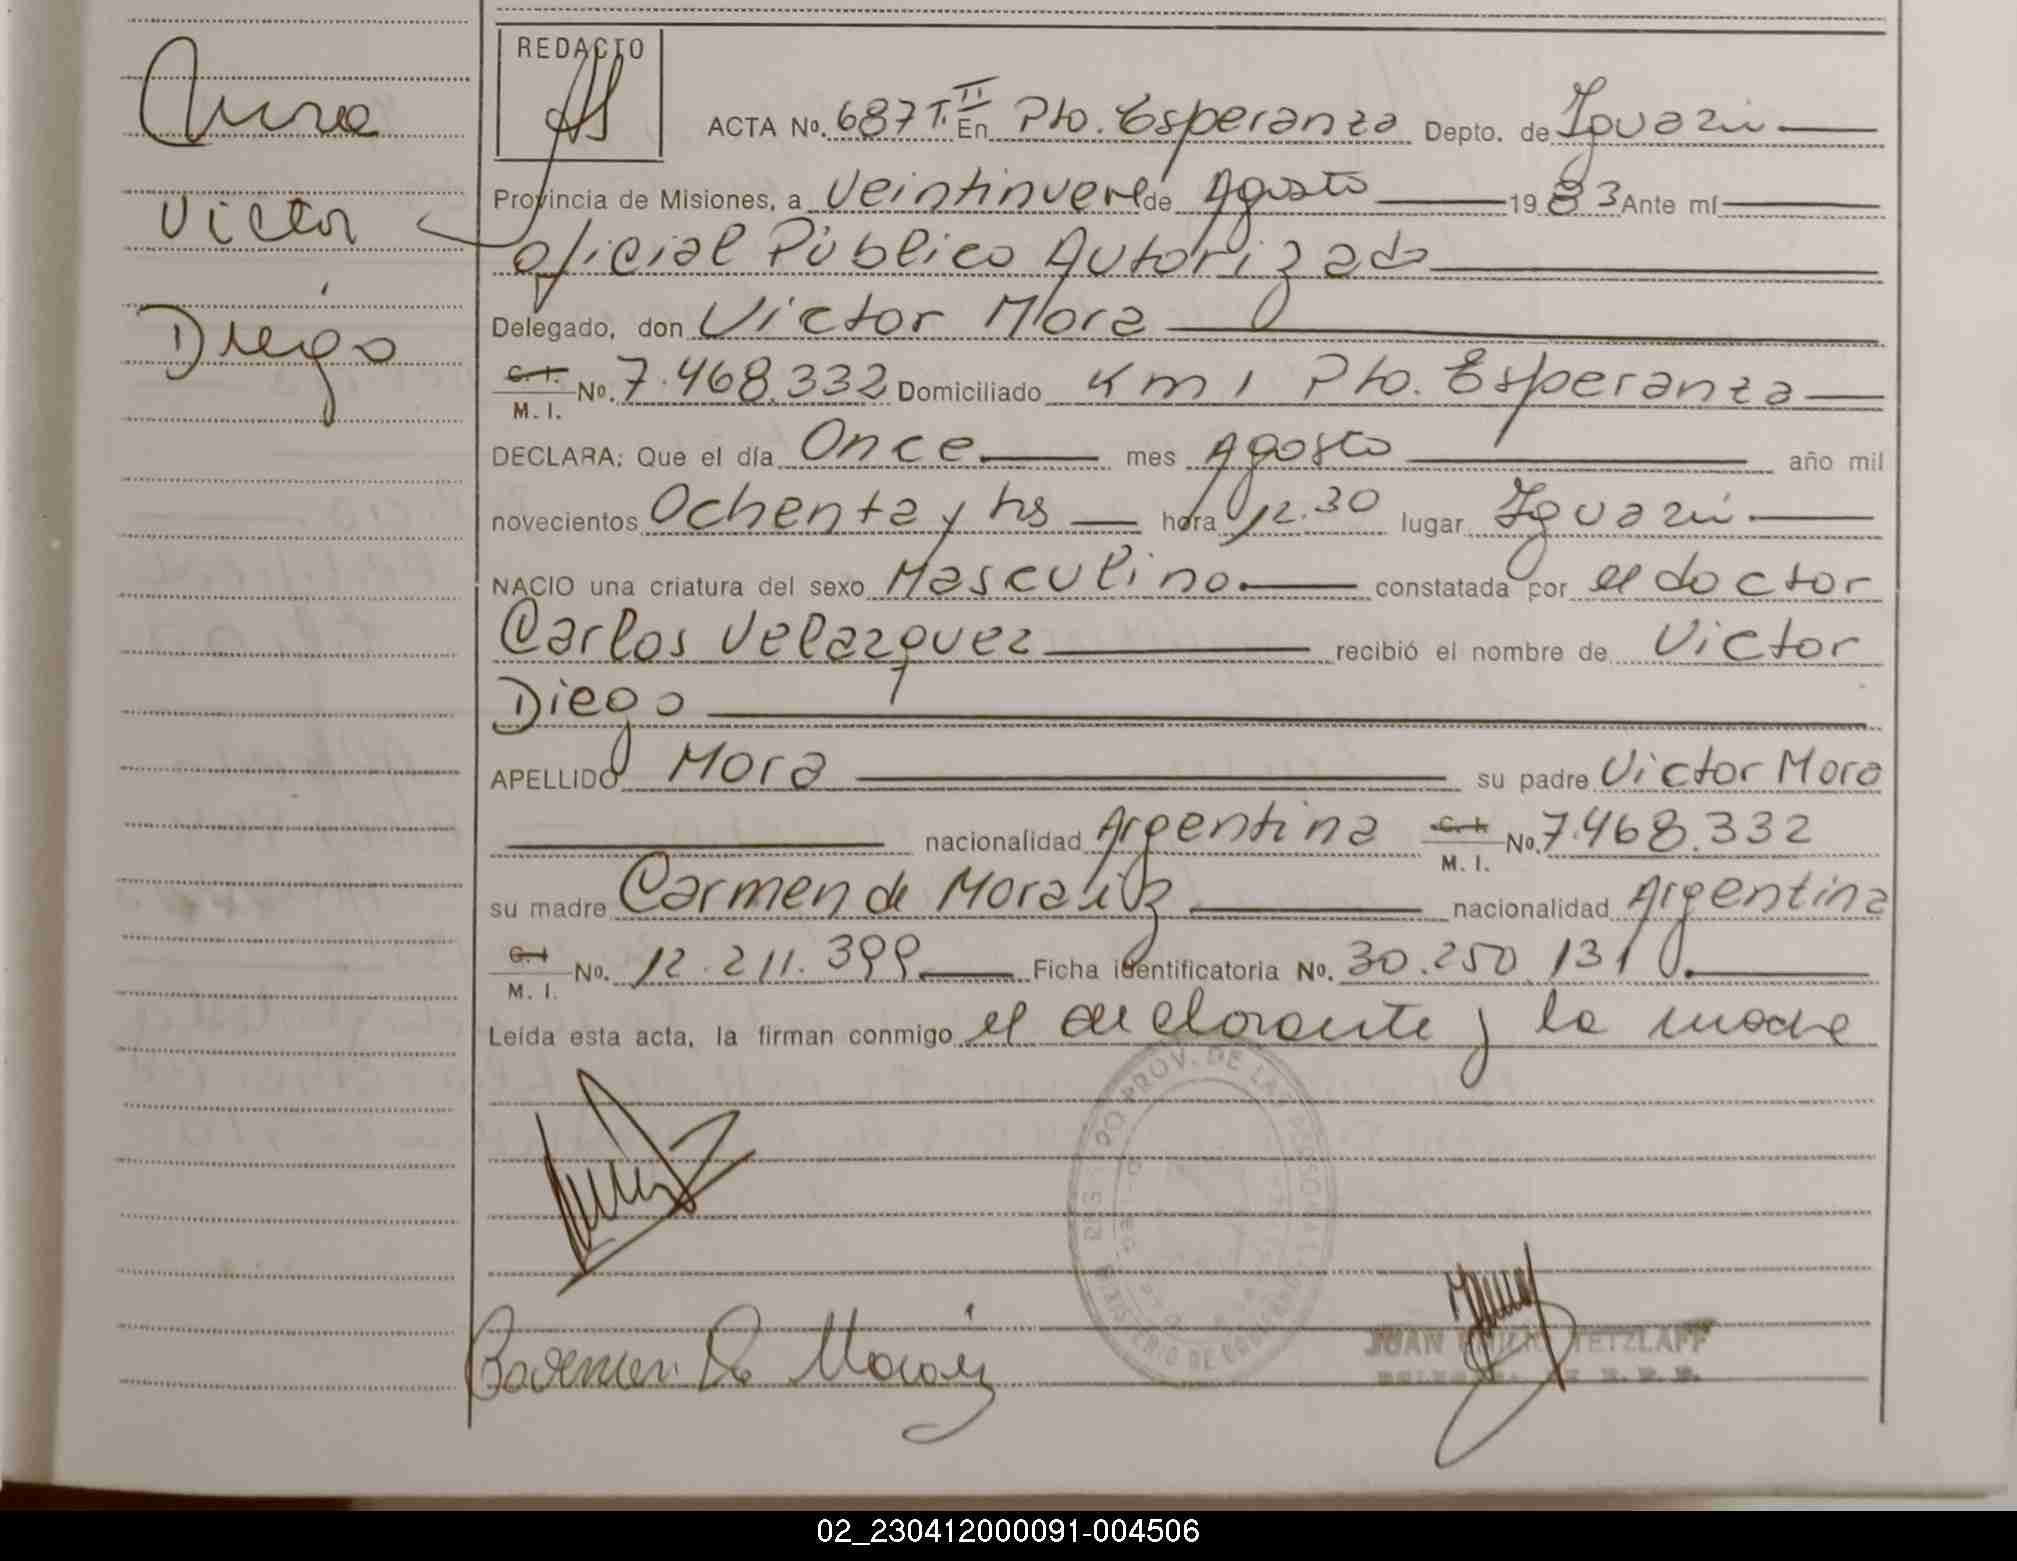 REDACTO
ACTA Nº. 687 T. II En Pto. Esperanza Depto. de Iguazú
Provincia de Misiones, a veintinueve de Agosto 1983 Ante mí
oficial Público Autorizado
Delegado, don Victor Mora
C. I. M. I. Nº. 7.468.332 Domiciliado Km 1 Pto. Esperanza
DECLARA: Que el día Once mes Agosto año mil
novecientos Ochenta y tres hora 12.30 lugar Iguazú
NACIO una criatura del sexo Masculino constatada por el doctor
Carlos Velazquez recibió el nombre de Victor
Diego
APELLIDO Mora su padre Victor Mora
nacionalidad Argentina C. I. M. I. Nº. 7.468.332
su madre Carmen de Moraiz nacionalidad Argentina
C. I. M. I. Nº. 12.211.399 Ficha identificatoria Nº. 30.250.131
Leída esta acta, la firman conmigo el declarante y la madre
Mora
Victor
Diego
PROV. DE LAS PERSONAS
MINISTERIO DE GOBIERNO
De Moraiz
JUAN EMILIO TETZLAFF
02_230412000091-004506